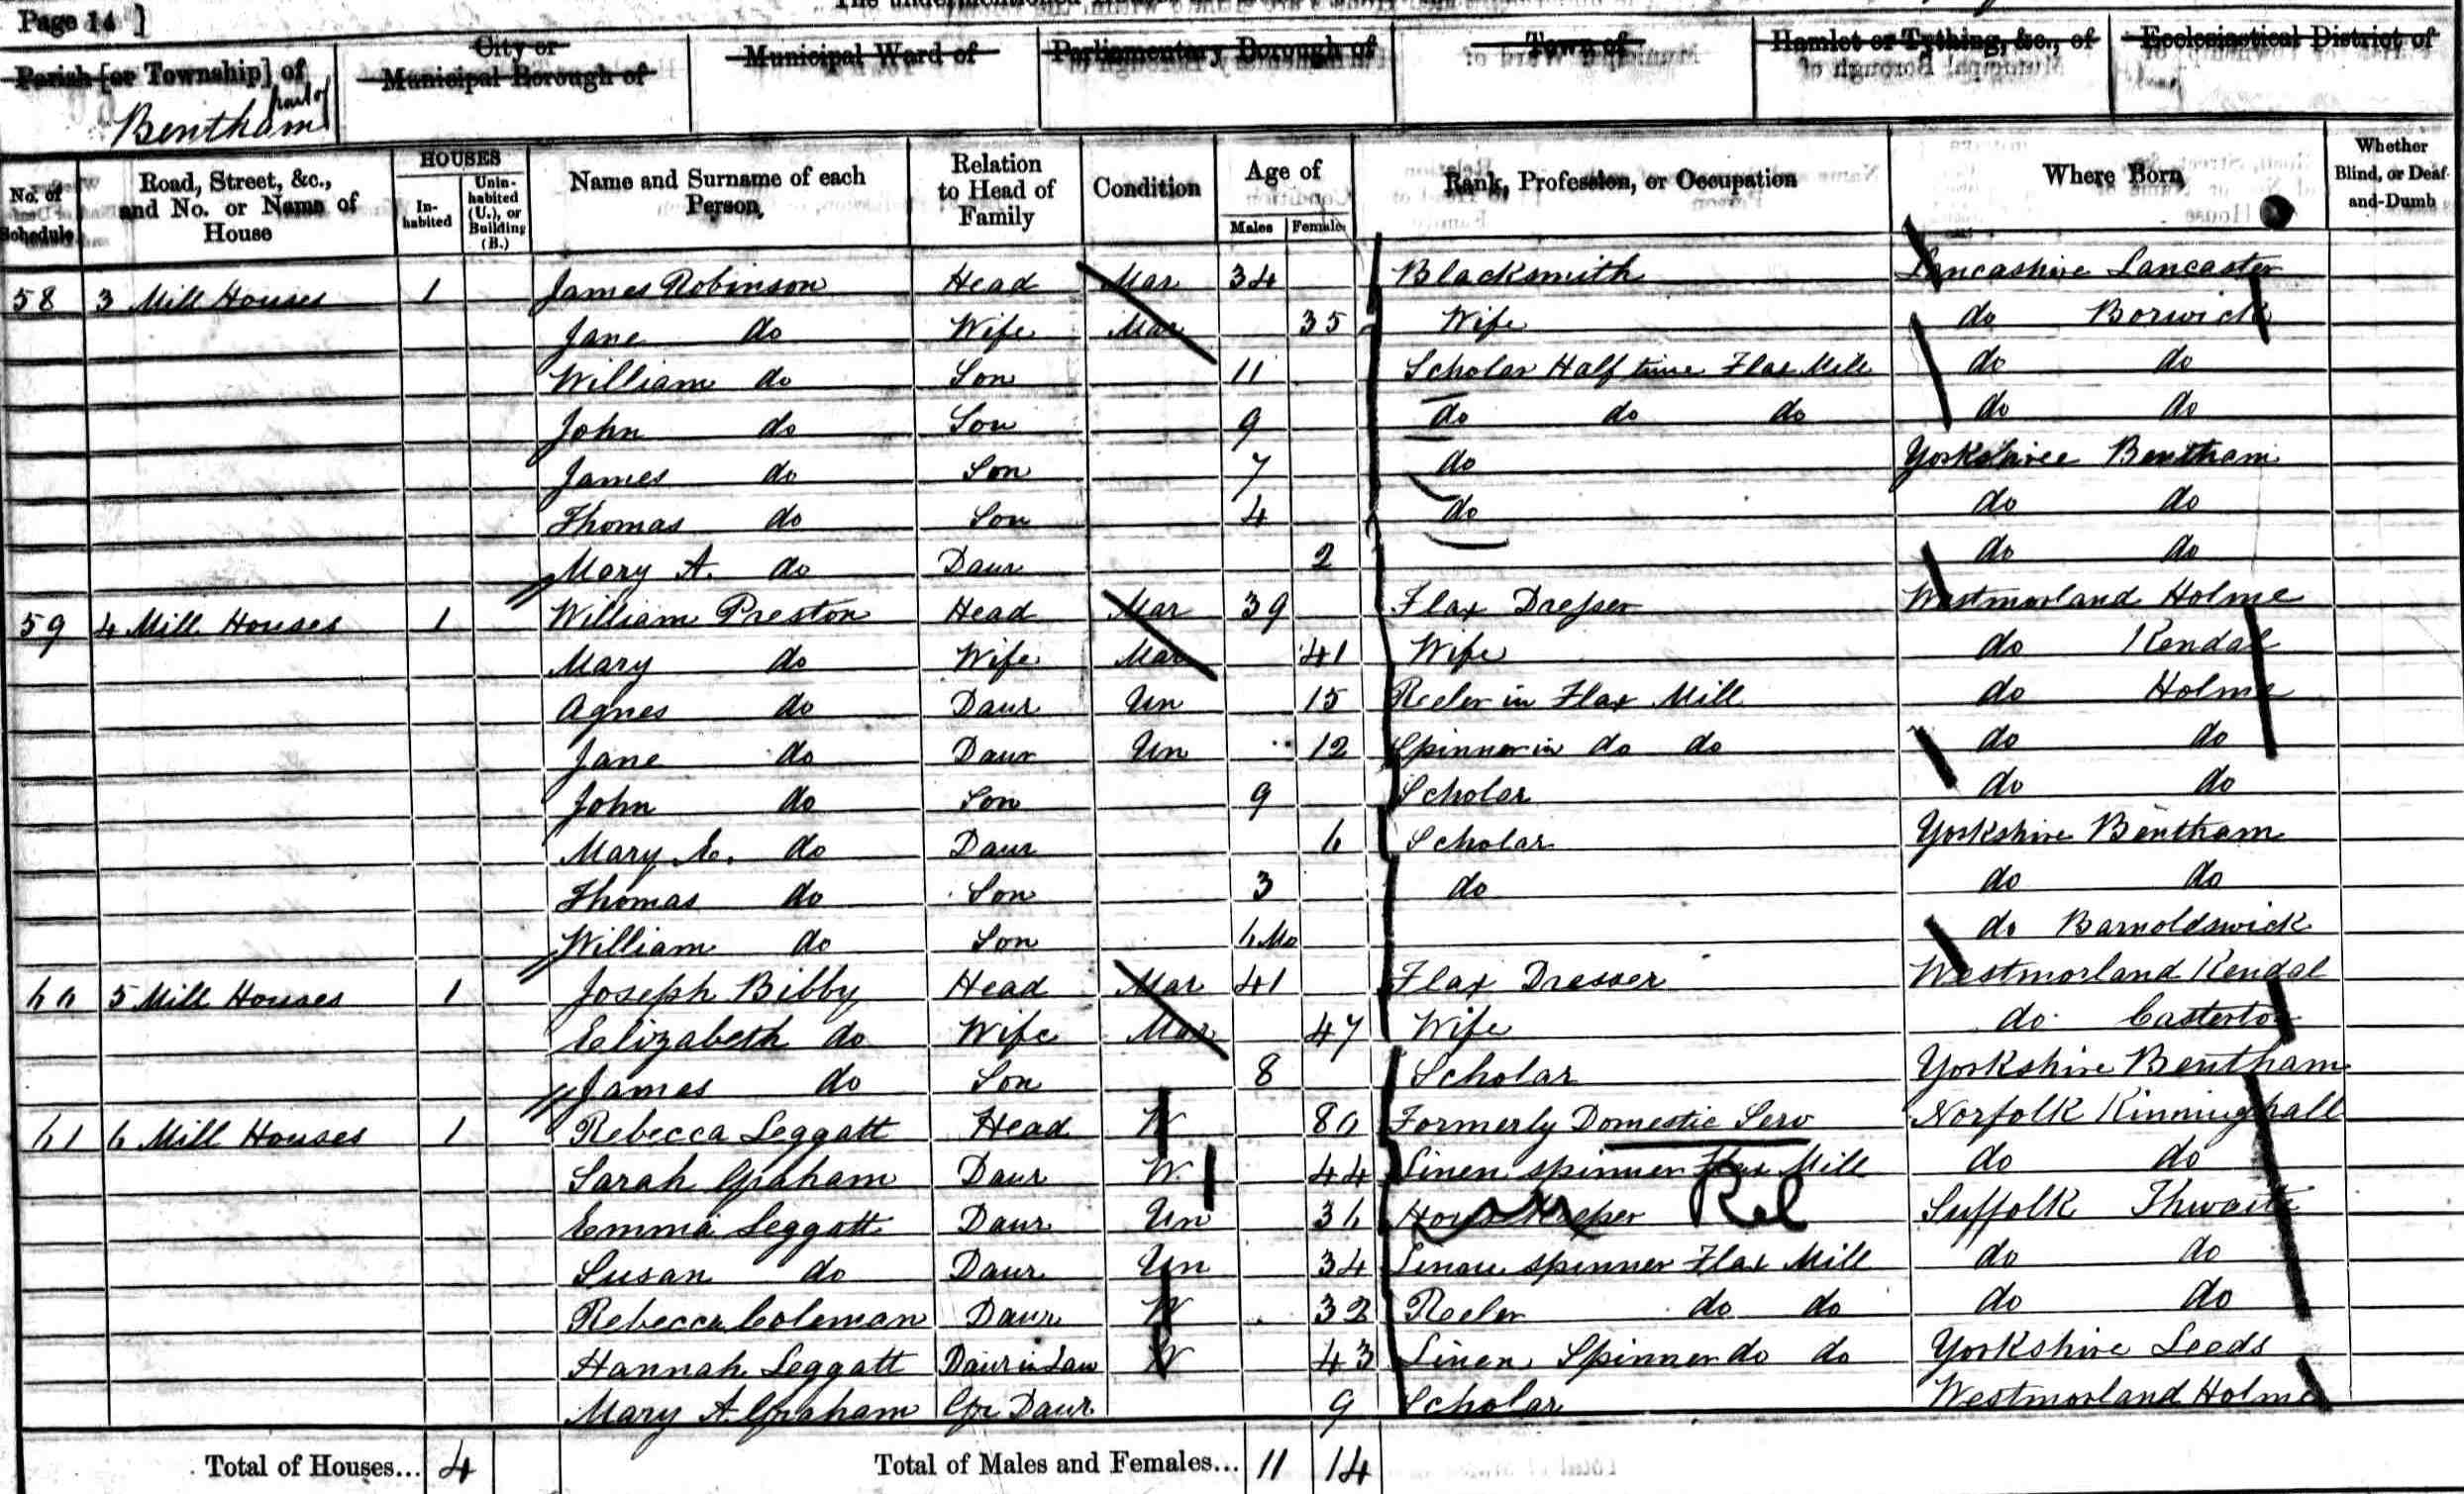 Page 14 ]
The undermentioned
Parish [or Township] of
City or Municipal Borough of
Municipal Ward of
Parliamentary Borough of
Town of
Hamlet or Tything, &c., of
Ecclesiastical District of
part of
Bentham
No. of Schedule
Road, Street, &c., and No. or Name of House
HOUSES
In-habited
Unin-habited (U.), or Building (B.)
Name and Surname of each Person
Relation to Head of Family
Condition
Age of
Males
Females
Rank, Profession, or Occupation
Where Born
Whether Blind, or Deaf-and-Dumb
58 3 Mill Houses 1 James Robinson Head Mar 34 Blacksmith Lancashire Lancaster
Jane do Wife Mar 35 Wife do Borwick
William do Son 11 Scholar Half time Flax Mill do do
John do Son 9 do do do do do
James do Son 7 do Yorkshire Bentham
Thomas do Son 4 do do do
Mary A. do Daur 2 do do
59 4 Mill Houses 1 William Preston Head Mar 39 Flax Dresser Westmorland Holme
Mary do Wife Mar 41 Wife do Kendal
Agnes do Daur Un 15 Reeler in Flax Mill do Holme
Jane do Daur Un 12 Spinner in do do do do
John do Son 9 Scholar do do
Mary E. do Daur 6 Scholar Yorkshire Bentham
Thomas do Son 3 do do do
William do Son 6 Mo do Barnoldswick
60 5 Mill Houses 1 Joseph Bibby Head Mar 41 Flax Dresser Westmorland Kendal
Elizabeth do Wife Mar 47 Wife do Casterton
James do Son 8 Scholar Yorkshire Bentham
61 6 Mill Houses 1 Rebecca Leggatt Head W 80 Formerly Domestic Serv Norfolk Kinninghall
Sarah Graham Daur W. 44 Linen spinner Flax Mill do do
Emma Leggatt Daur Un 36 Housekeeper Rel Suffolk Thwaite
Susan do Daur Un 34 Linen spinner Flax Mill do do
Rebecca Coleman Daur W 32 Reeler do do do do
Hannah Leggatt Daur in Law W 43 Linen Spinner do do Yorkshire Leeds
Mary A Graham Gr Daur 9 Scholar Westmorland Holme
Total of Houses... 4 Total of Males and Females... 11 14